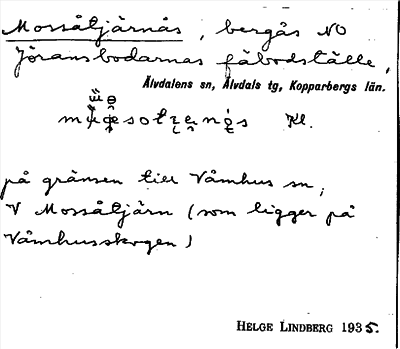 Mossåtjärnås, bergås NO
Jöransbodarnas fäbodställe,
Älvdalens sn, Älvdals tg, Kopparbergs län.
Kl.
på gränsen till Våmhus sn,
V Mossåtjärn (som ligger på
Våmhusskogen)
HELGE LINDBERG 1935.